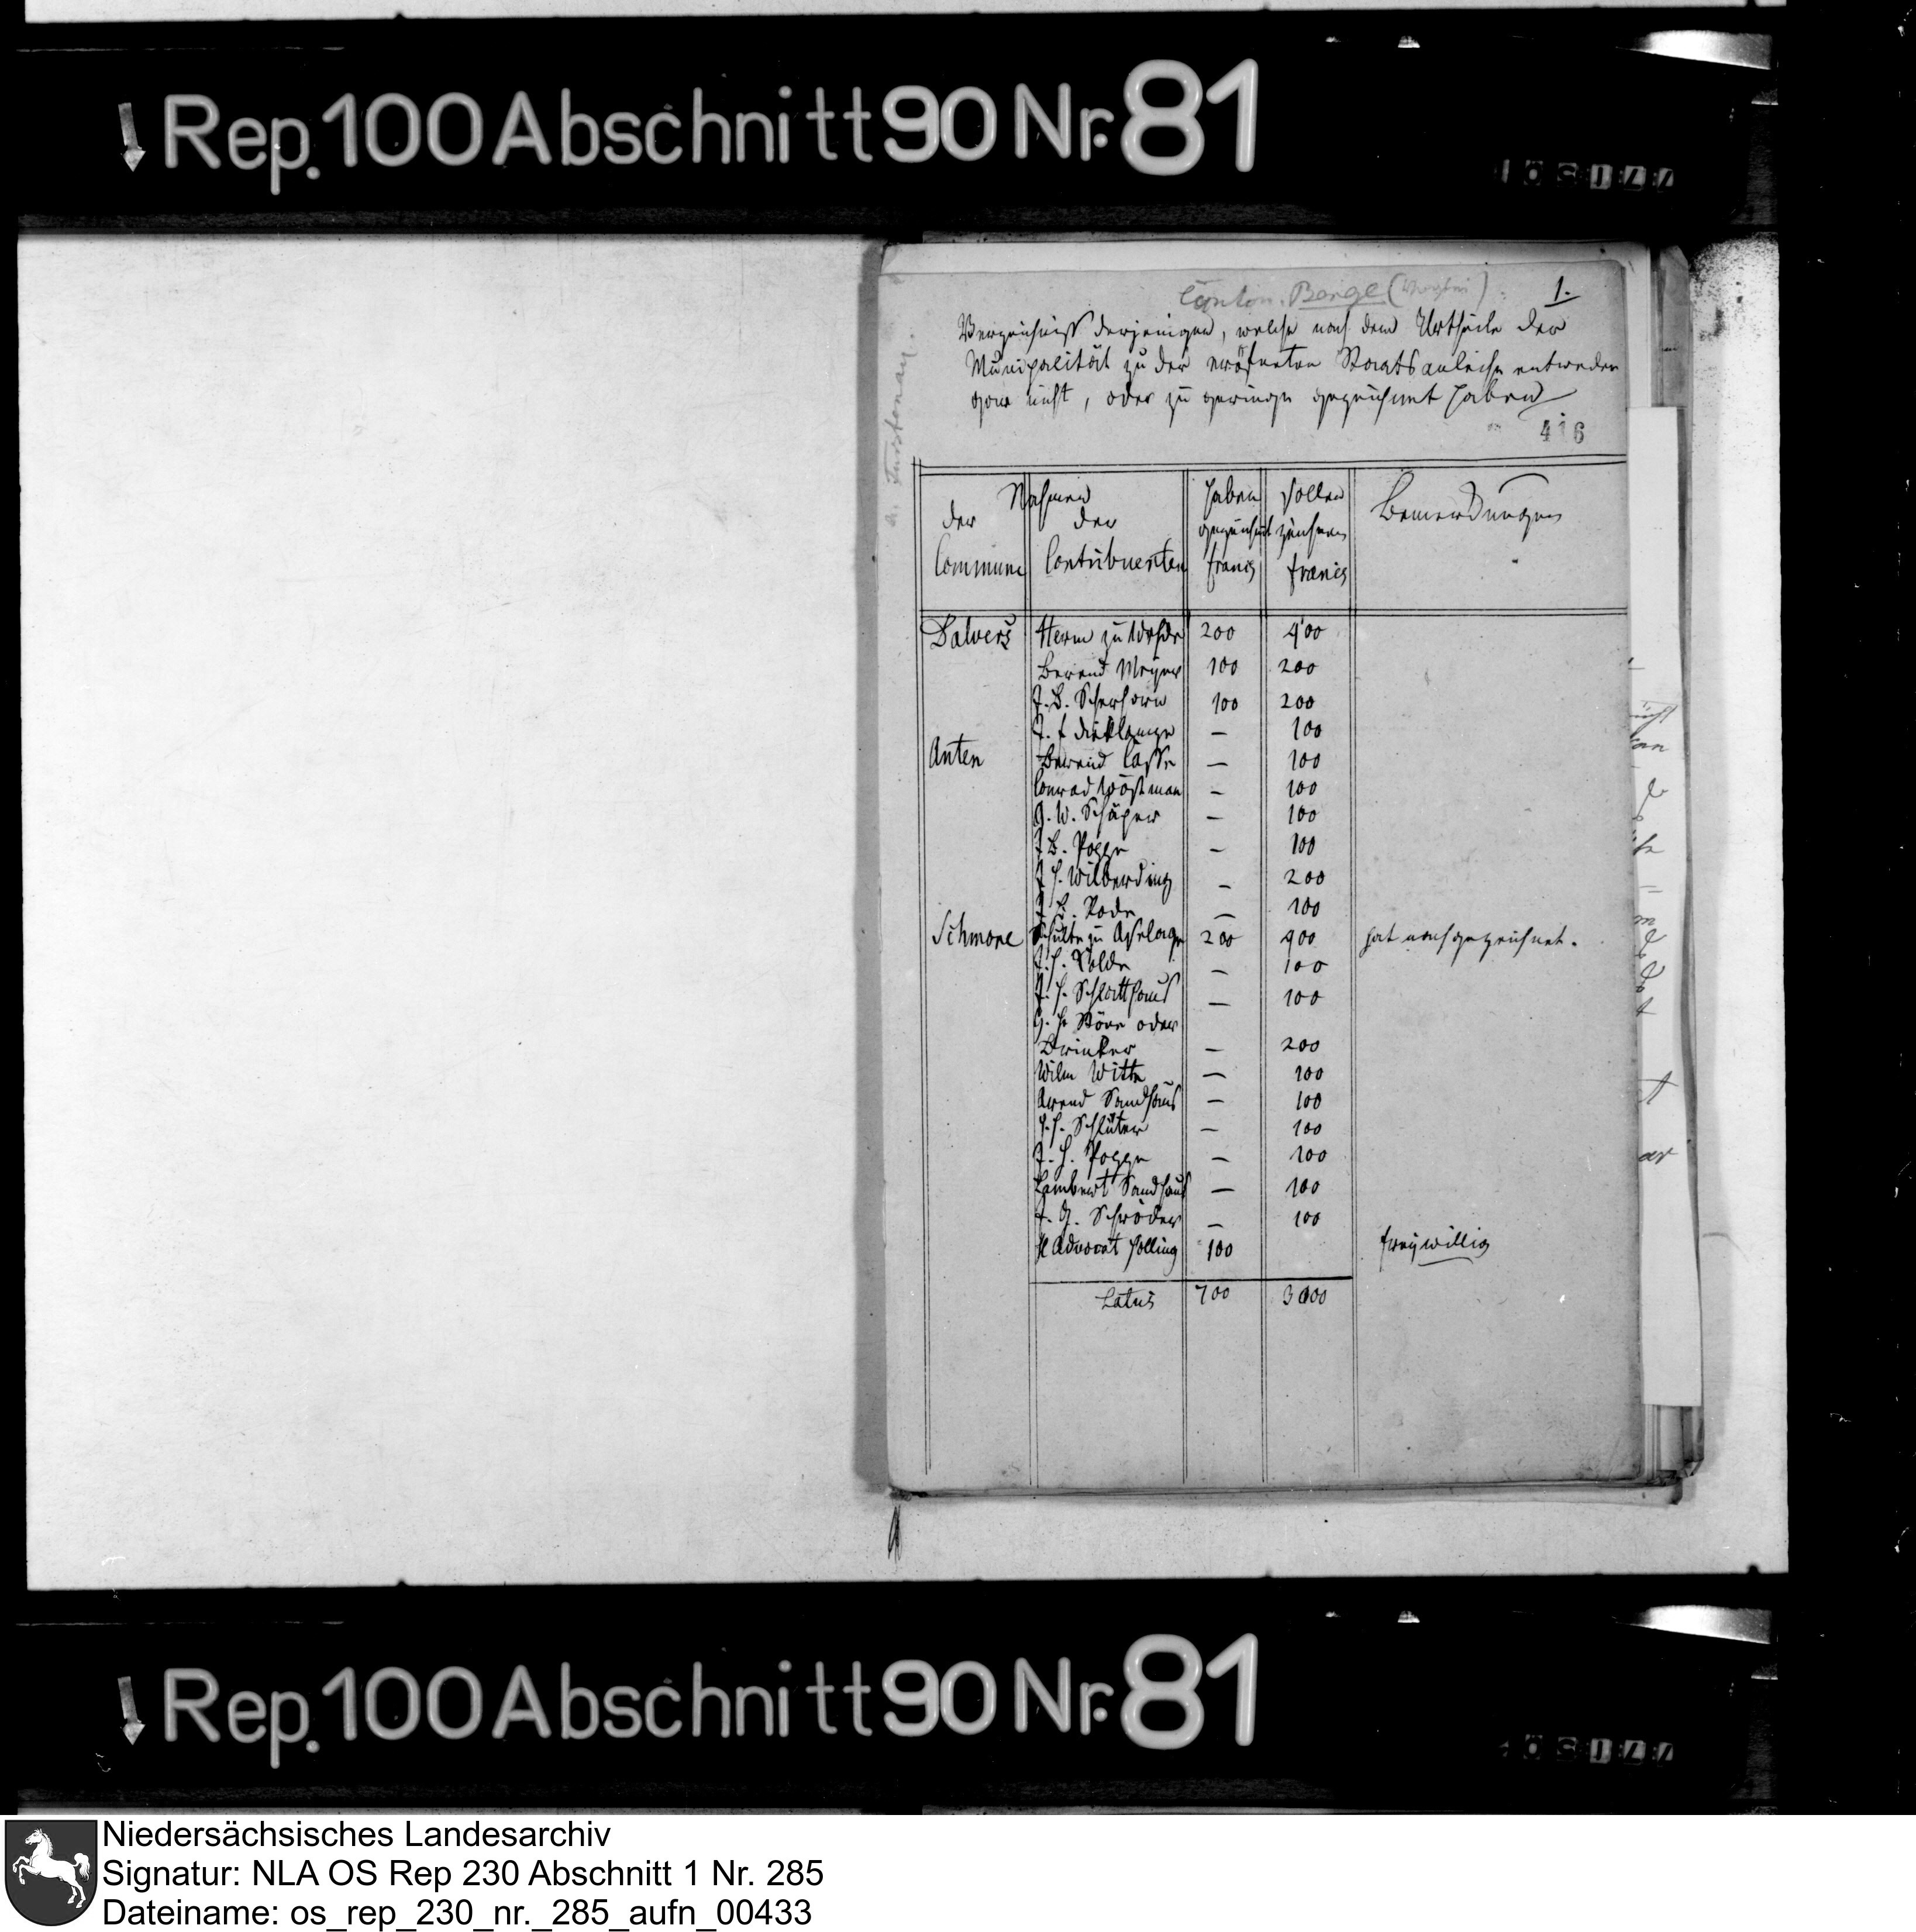 Rep. 100 Abschnitt 90 Nr. 81
Canton Berge
1.
Verzeichniß derjenigen, welche nach dem Urtheile der
Municipalität zu der eröfneten Staatsanleihe entweder
gar nicht, oder zu geringe gezeichnet haben
416
A. Fürstenau.
Nahmen
der Commune | der Contribuenten | haben gezeichnet francs | sollen zeichnen francs | Bemerkungen
Dalvers | Herm zu Wehde | 200 | 400
Berend Meyer | 100 | 200
J. B. Scherhorn | 100 | 200
J. f Dirklange | — | 100
Anten | Berend Casse | — | 100
Conrad Wöstman | — | 100
G. W. Schäper | — | 100
J B. Pogge | — | 100
J H. Wilberding | — | 200
J H. Rode | — | 100
Schmone | Schulte zu Aslage | 200 | 400 | hat nachgezeichnet.
J. H. Kolde | — | 100
J. H. Schlatthaus | — | 100
G. H. Böre oder
Brinker | — | 200
Wilm Witte | — | 100
Arend Sandhaus | — | 100
J. H. Schlüter | — | 100
J. H. Pogge | — | 100
Lambert Sandhaus | — | 100
J. G. Schröder | — | 100
H Advocat Holling | 100 | freywillig
Latus | 700 | 3000
Rep. 100 Abschnitt 90 Nr. 81
Niedersächsisches Landesarchiv
Signatur: NLA OS Rep 230 Abschnitt 1 Nr. 285
Dateiname: os_rep_230_nr._285_aufn_00433